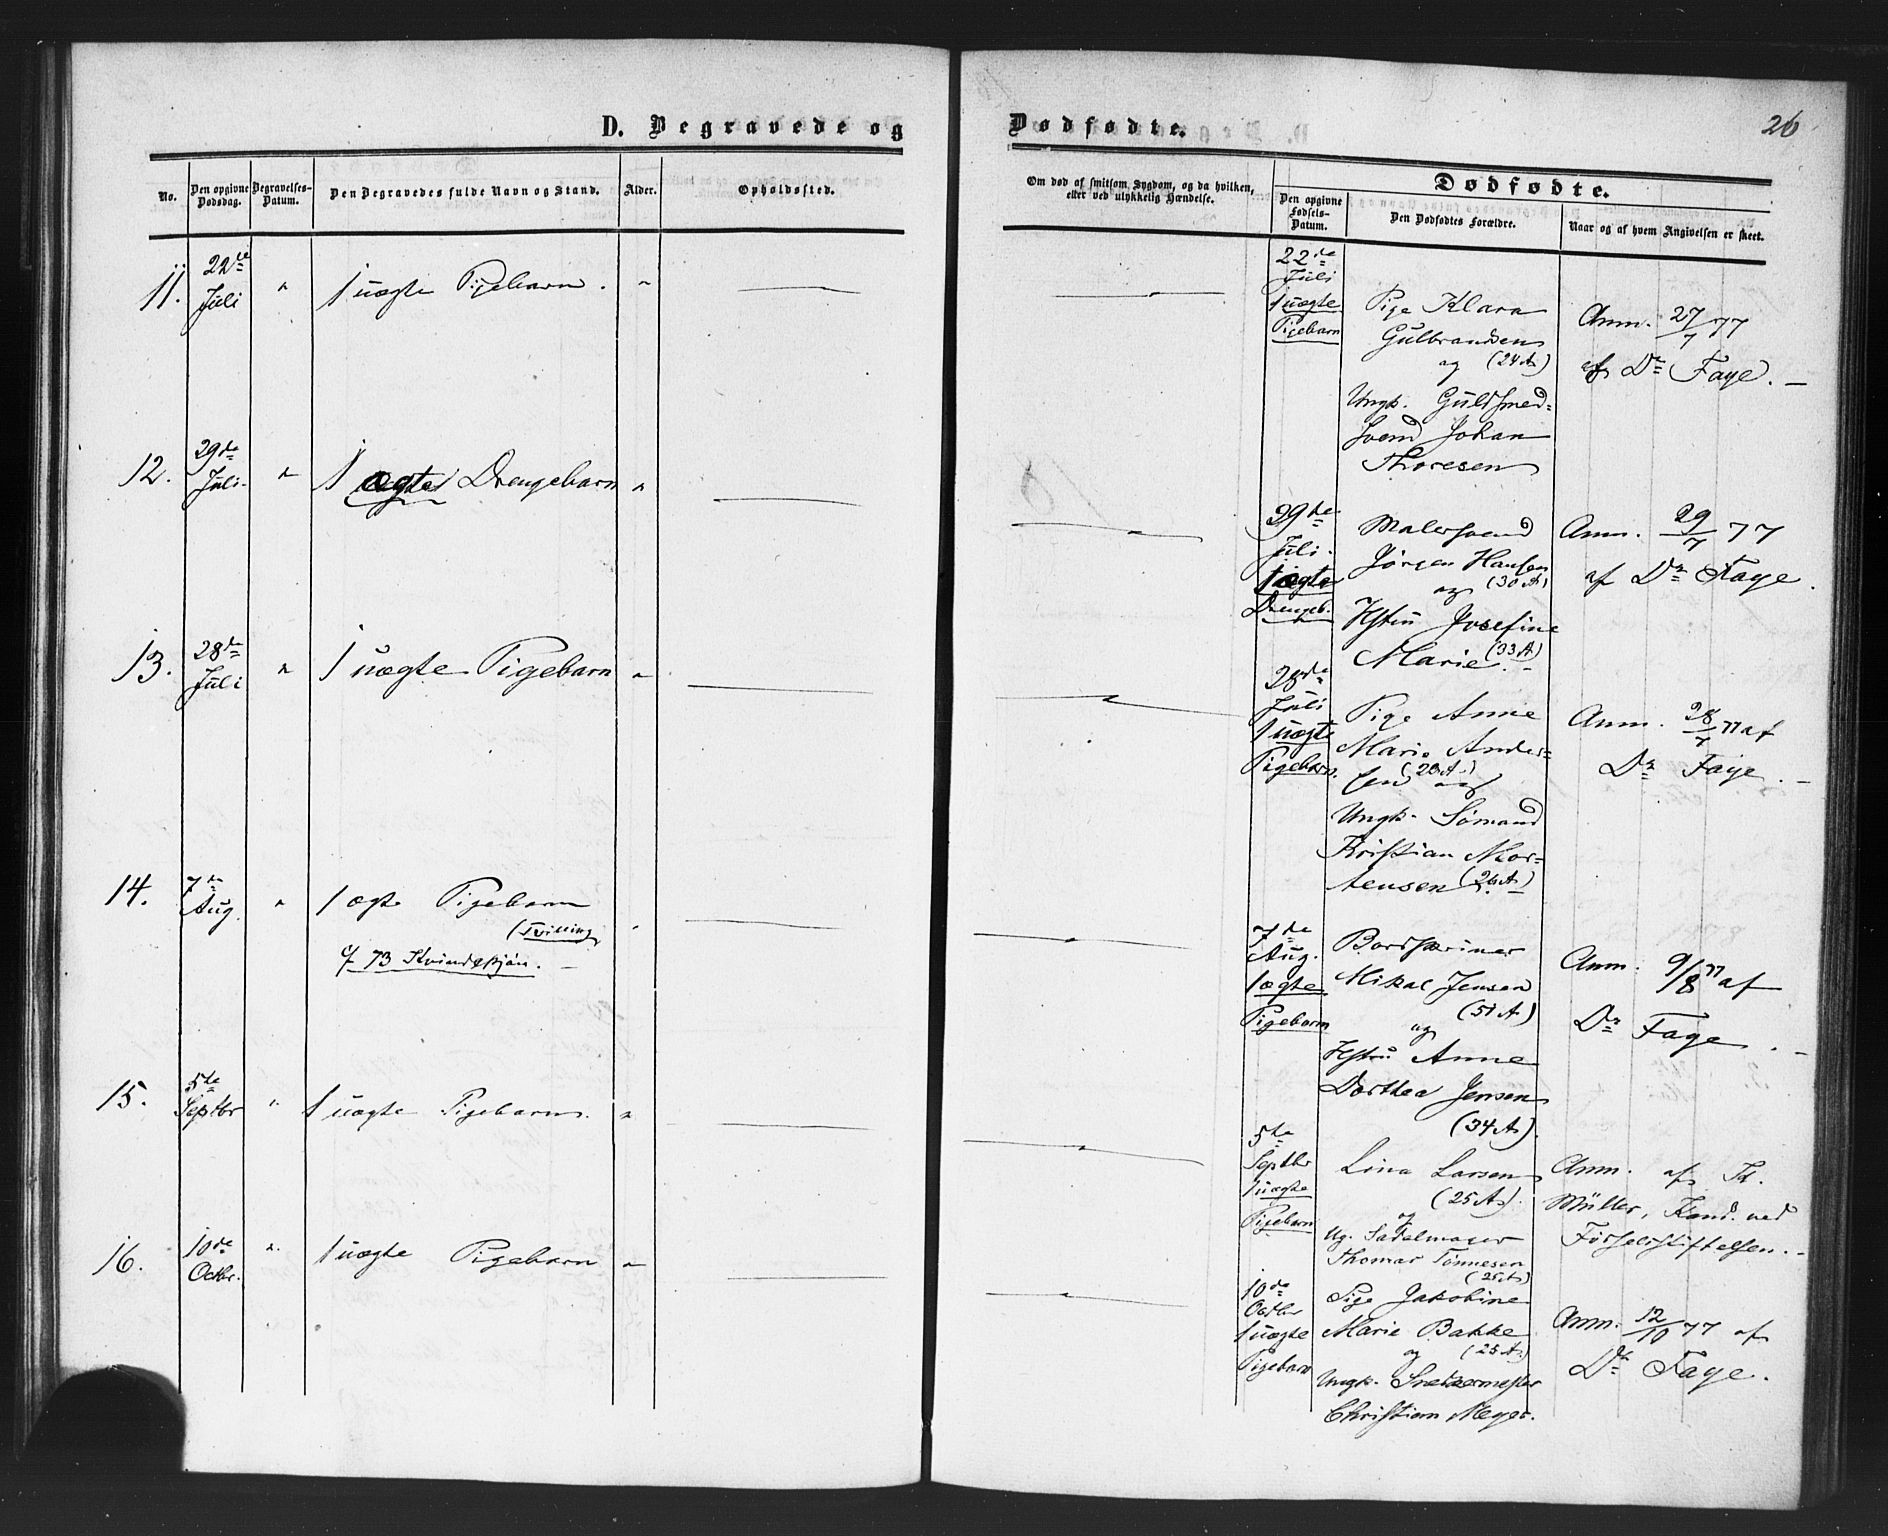 D. Begravede og
No.
Den opgivne Dødsdag.
Begravelses-Datum.
Den Begravedes fulde Navn og Stand.
Alder.
Opholdssted.
11.
22de
Juli
"
1 uægte Pigebarn.
"
12.
29de
Juli.
"
1 ægte Drengebarn
"
13.
28de
Juli
"
1 uægte Pigebarn
"
14.
7de
Aug.
"
1 ægte Pigebarn
(Tvilling
cf 73 Kvindekjön. –
15.
5te
Septbr
"
1 uægte Pigebarn.
"
16.
10de
Octbr.
"
1 uægte Pigebarn
"
Dødfødte.
26
Om død af smitsom Sygdom, og da hvilken,
eller ved ulykkelig Hændelse.
Dødfødte.
Den opgivne
Fødsels-
Datum.
Den Dødfødtes Forældre.
Naar og af hvem Angivelsen er skeet.
22de
Juli
1 uægte
Pigebarn
Pige Klara
Gulbrandsen
og (24 A)
Ungk. Guldsmed-
svend Johan
Thoresen
Anm. 27/7 77
af Dr Faye. –
29de
Juli.
1 ægte
Drengeb.
Malersvend
Jørgen Hansen
og (30 A)
Hstru Josefine
Marie. (33 A)
Anm. 29/7 77
af Dr Faye.
28de
Juli
1 uægte
Pigebarn.
Pige Anne
Marie Ander-
sen og
Ungk. Sömand
Kristian Mor-
tensen (26 A)
Anm. 28/7 77 af
Dr Faye. –
7de
Aug.
1 ægte
Pigebarn
Bordskriver
Mikal Jensen
(51 A)
og
Hstru Anne
Dorthea Jensen
(34 A).
Anm. 9/8 77 af
Dr Faye. –
5te
Septbr
1 uægte
Pigebarn
Lina Larsen
(25 A).
og
Ug. Sadelmager
Thomas Tönnesen
(25 A)
Anm. af
Müller, Kand. ved
Födselsstiftelsen. –
10de
Octbr
1 uægte
Pigebarn
Pige Jakobine
Marie Bakke
og (25 A)
Ungk.
Christian Meyer.
Anm. 12/10 77 af
Dr Faye.